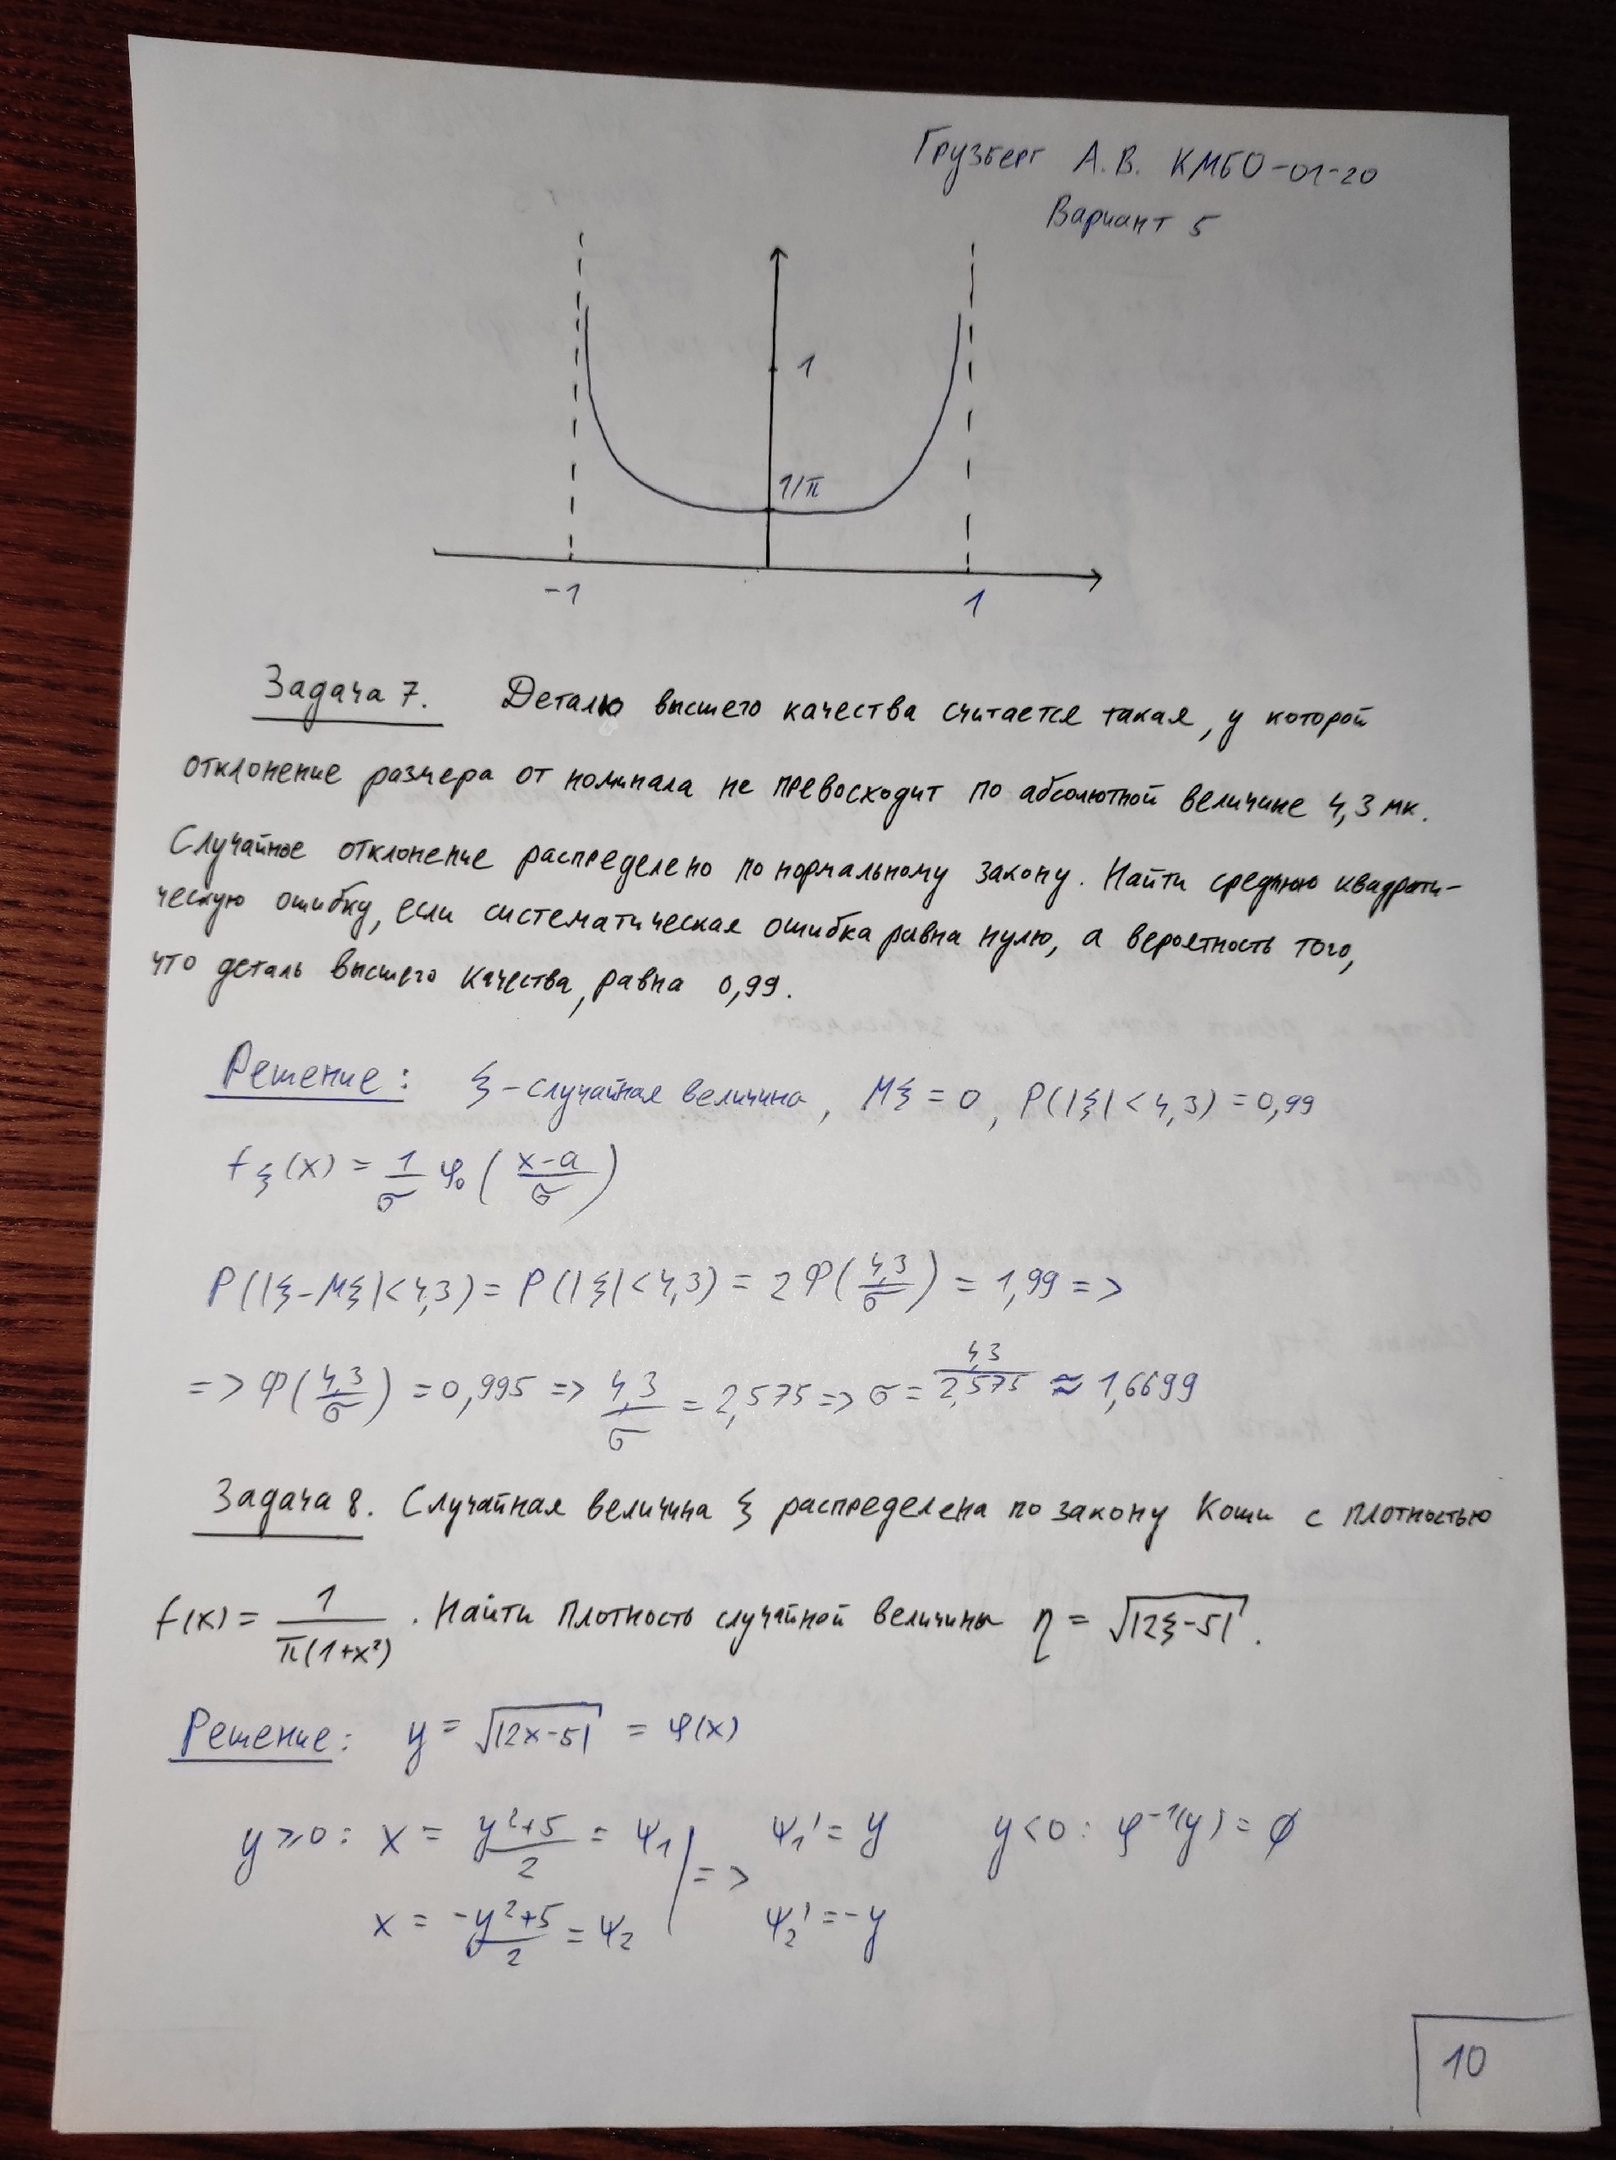 Грузберг А.В. КМБО-01-20
Вариант 5
1
1/π
-1
1
Задача 7. Деталю высшего качества считается такая, у которой
отклонение размера от номинала не превосходит по абсолютной величине 4,3 мк.
Случайное отклонение распределено по нормальному закону. Найти среднюю квадрати-
ческую ошибку, если систематическая ошибка равна нулю, а вероятность того,
что деталь высшего качества, равна 0,99.
Решение: ξ - случайная величина, Mξ = 0, P(|ξ| < 4,3) = 0,99
f_ξ(x) = 1/σ φ₀((x-a)/σ)
P(|ξ-Mξ| < 4,3) = P(|ξ| < 4,3) = 2Φ(4,3/σ) = 1,99 =>
=> Φ(4,3/σ) = 0,995 => 4,3/σ = 2,575 => σ = 4,3/2,575 ≈ 1,6699
Задача 8. Случайная величина ξ распределена по закону Коши с плотностью
f(x) = 1/(π(1+x²)). Найти плотность случайной величины η = √|2ξ-5|.
Решение: y = √|2x-5| = φ(x)
y ≥ 0: x = (y²+5)/2 = ψ₁ | => ψ₁' = y y < 0: φ⁻¹(y) = ∅
x = (-y²+5)/2 = ψ₂ ψ₂' = -y
10